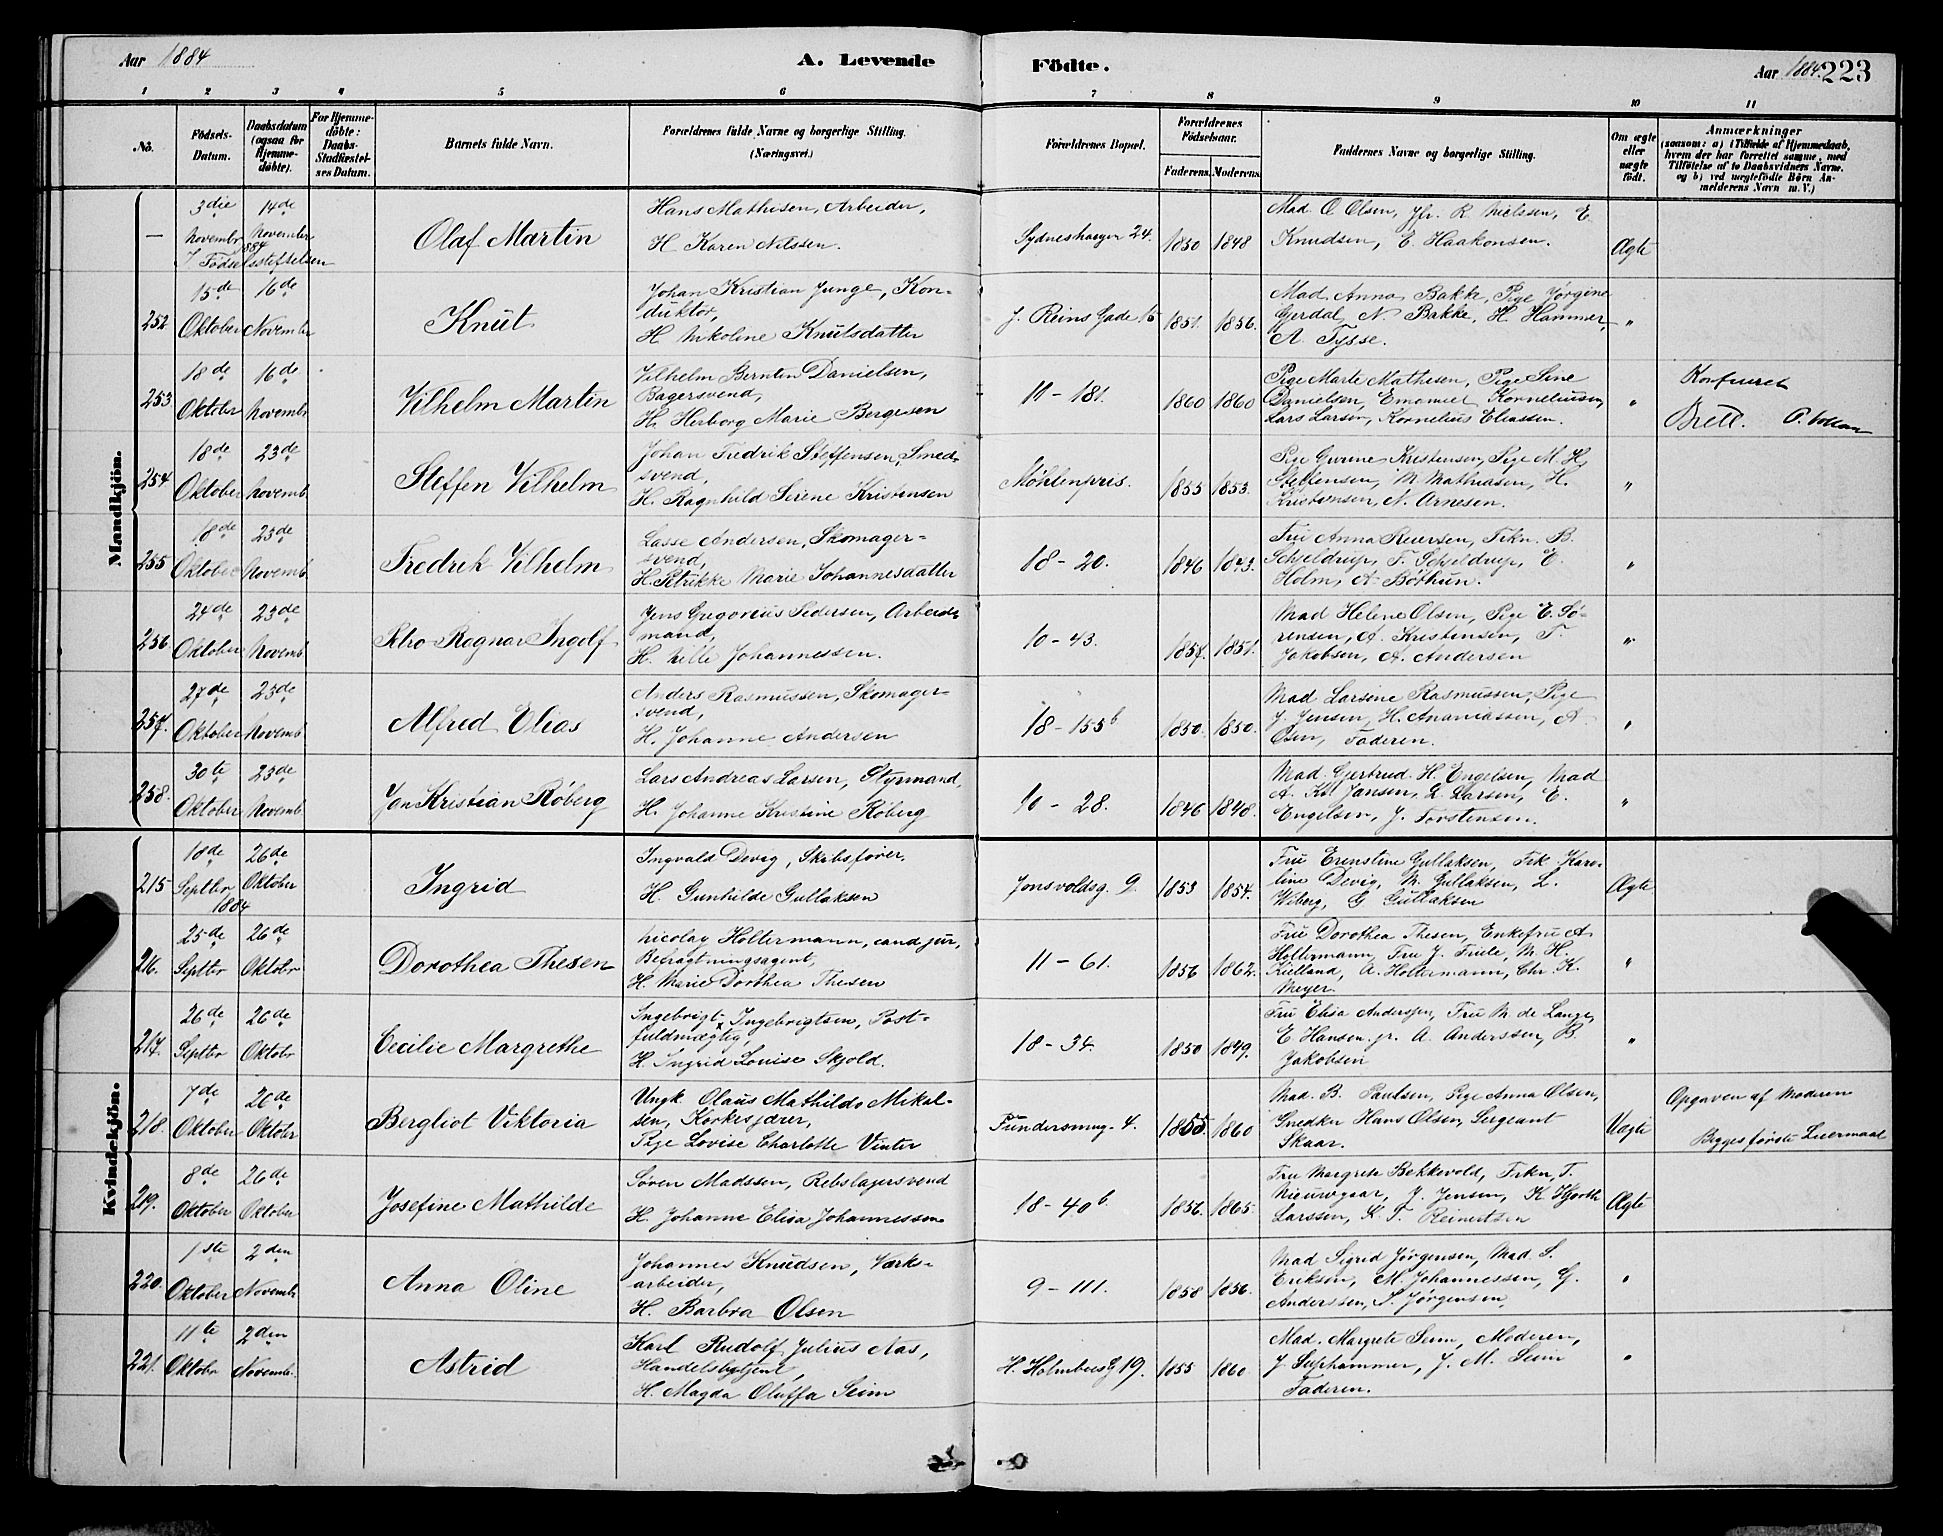 Aar 1884
A. Levende
Födte.
Aar 1884
223
1 2 3 4 5 6 7 8 9 10 11
No.
Födsels-Datum.
Daabsdatum (ogsaa for Hjemmedöbte).
For Hjemmedöbte: Daabs-Stadfæstelses Datum.
Barnets fulde Navn.
Forældrenes fulde Navne og borgerlige Stilling.
(Næringsvei.)
Forældrenes Bopæl.
Forældrenes Födselsaar.
Faderens. Moderens.
Faddernes Navne og borgerlige Stilling.
Om ægte eller uægte födt.
Anmærkninger
(saasom: a) i Tilfælde af Hjemmedaab, hvem der har forrettet samme, med Tilföielse af to Daabsvidners Navne, og b) ved uægtefödte Börn Anmelderens Navn m. V.)
Mandkjön.
— 3die November 14de November
1884
I Födselsstiftelsen
Olaf Martin
Hans Mathisen, Arbeider,
H. Karen Nilssen.
Sydneshaugen 24. 1850 1848
Mad. O Olsen, Jfr. R. Nielsen, E.
Knudsen, E. Haakonsen.
Ægte
252 15de Oktober 16de November
Knut
Johan Kristian Junge, Kon-
duktor,
H. Nikoline Knutsdatter
J. Reins Gade 15 1851. 1856.
Mad. Anna Bakke, Pige Jörgine
Gerdal, N. Bakke, H. Hammer,
A. Tysse.
"
253 18de Oktober 16de Novembr
Vilhelm Martin
Vilhelm Bernten Danielsen,
Bagersvend,
H. Herborg Marie Bergesen
11 - 181. 1860 1860
Pige Marte Mathisen, Pige Sine
Danielsen, Emanuel Korneliusen,
Lars Larsen, Kornelius Eliassen.
"
254 18de Oktober 23de Novemb
Steffen Vilhelm
Johan Fredrik Steffensen, Smed-
svend,
H. Ragnhild Serene Kristensen
Møhlenpris. 1855 1853.
Pige Gurine Kristensen, Pige M. H.
Steffensen, M. Mathiasen, H.
Kristensen, N. Arnesen.
"
255 18de Oktober 23de Novemb
Fredrik Vilhelm
Lasse Andersen, Skomager-
svend,
H. Petrikke Marie Johannesdatter
18 - 20. 1846 1843.
Fru Anna Reiersen, Frkn. B.
Schjeldrup, T. Schjeldrup, E.
Holm, A. Börhun.
"
256 24de Oktober 23de Novemb
Petro Ragnar Ingolf
Jens Gregorius Pedersen, Arbeids-
mand,
H. Nille Johannessen.
10 - 43. 1857. 1851.
Mad Helene Olsen, Pige E. Sö-
rensen, A. Kristensen, T.
Jakobsen, A. Andersen
"
257. 27de Oktober 23de Novemb
Alfred Elias
Anders Rasmussen, Skomager-
svend,
H. Johanne Andersen
18 - 155b 1850. 1850.
Mad Larsine Rasmussen, Pige
J. Jensen, H. Ananiassen, A.
Olsen, Faderen.
"
258. 30te Oktober 23de Novemb
Jan Kristian Röberg
Lars Andreas Larsen, Styrmand,
H. Johanne Kristine Röberg
10 - 28. 1846 1848.
Mad. Gjertrud H. Engelsen, Mad
A. Jansen, L. Larsen, E.
Engelsen, J. Torstensen.
"
Kvindekjön.
215 18de Septbr 1884 26de Oktober
Ingrid
Ingvald Devig, Skibsfører,
H. Gunhilde Gullaksen
Jonsvoldsg. 9. 1853 1854.
Fru Erenstine Gullaksen, Frk Karo-
line Devig, M. Gullaksen, L.
Wiberg, G Gullaksen
Ægte
216. 25de Septbr 26de Oktobr
Dorothea Thesen
Nicolay Holtermann, cand jur,
Befragtningsagent,
H. Marie Dorthea Thesen
11 - 61. 1856 1862.
Fru Dorothea Thesen, Enkefru A
Holtermann, Fru J. Friele, M. H.
Kielland, A. Holtermann, Chr. K.
Meyer.
"
217. 26de Septbr 26de Oktobr
Cecilie Margrethe
Ingebrigt Ingebrigtsen, Post-
fuldmægtig,
H. Ingrid Louise Skjold.
18 - 34. 1850 1849.
Fru Elisa Anderssen, Fru M de Lange,
E Hansen jr. A. Anderssen, B.
Jakobsen
"
218. 7de Oktober 26de Oktober
Bergliot Viktoria
Ungk Olaus Mathildo Mikal-
sen, Korkesjærer,
Pige Lovise Charlotte Vinter
Fundersmug. 4. 1855. 1860
Mad. B. Paulsen, Pige Anna Olsen,
Snedker Hans Olsen, Sergeant
Skaar.
Uægte
Opgaven af Moderen
Begges første Leiermaal
219. 8de Oktober 26de Oktober
Josefine Mathilde
Søren Madssen, Rebslagersvend
H. Johanne Elisa Johannessen
18 - 40b. 1856. 1865.
Fru Margrete Bekkevold, Frkn. T.
Nieuwejaar, J. Jensen, K Hjorth
Larssen, K. T. Reinertsen
Ægte
220. 1ste Oktober 2den Novembr
Anna Oline
Johannes Knudsen, Værks-
arbeider,
H. Barbra Olsen
9 - 111. 1858 1856.
Mad Sigrid Jörgensen, Mad. S.
Eriksen, M. Johannessen, G.
Anderssen, S. Jörgensen,
"
221. 11te Oktobr 2den Novemb.
Astrid
Karl Rudolf Julius Aas,
Handelsbetjent,
H. Magda Oluffa Seim
H. Holmboesg 19. 1855 1860
Mad. Margrete Seim, Moderen,
J. Suphammer, J. M. Seim
Faderen.
"